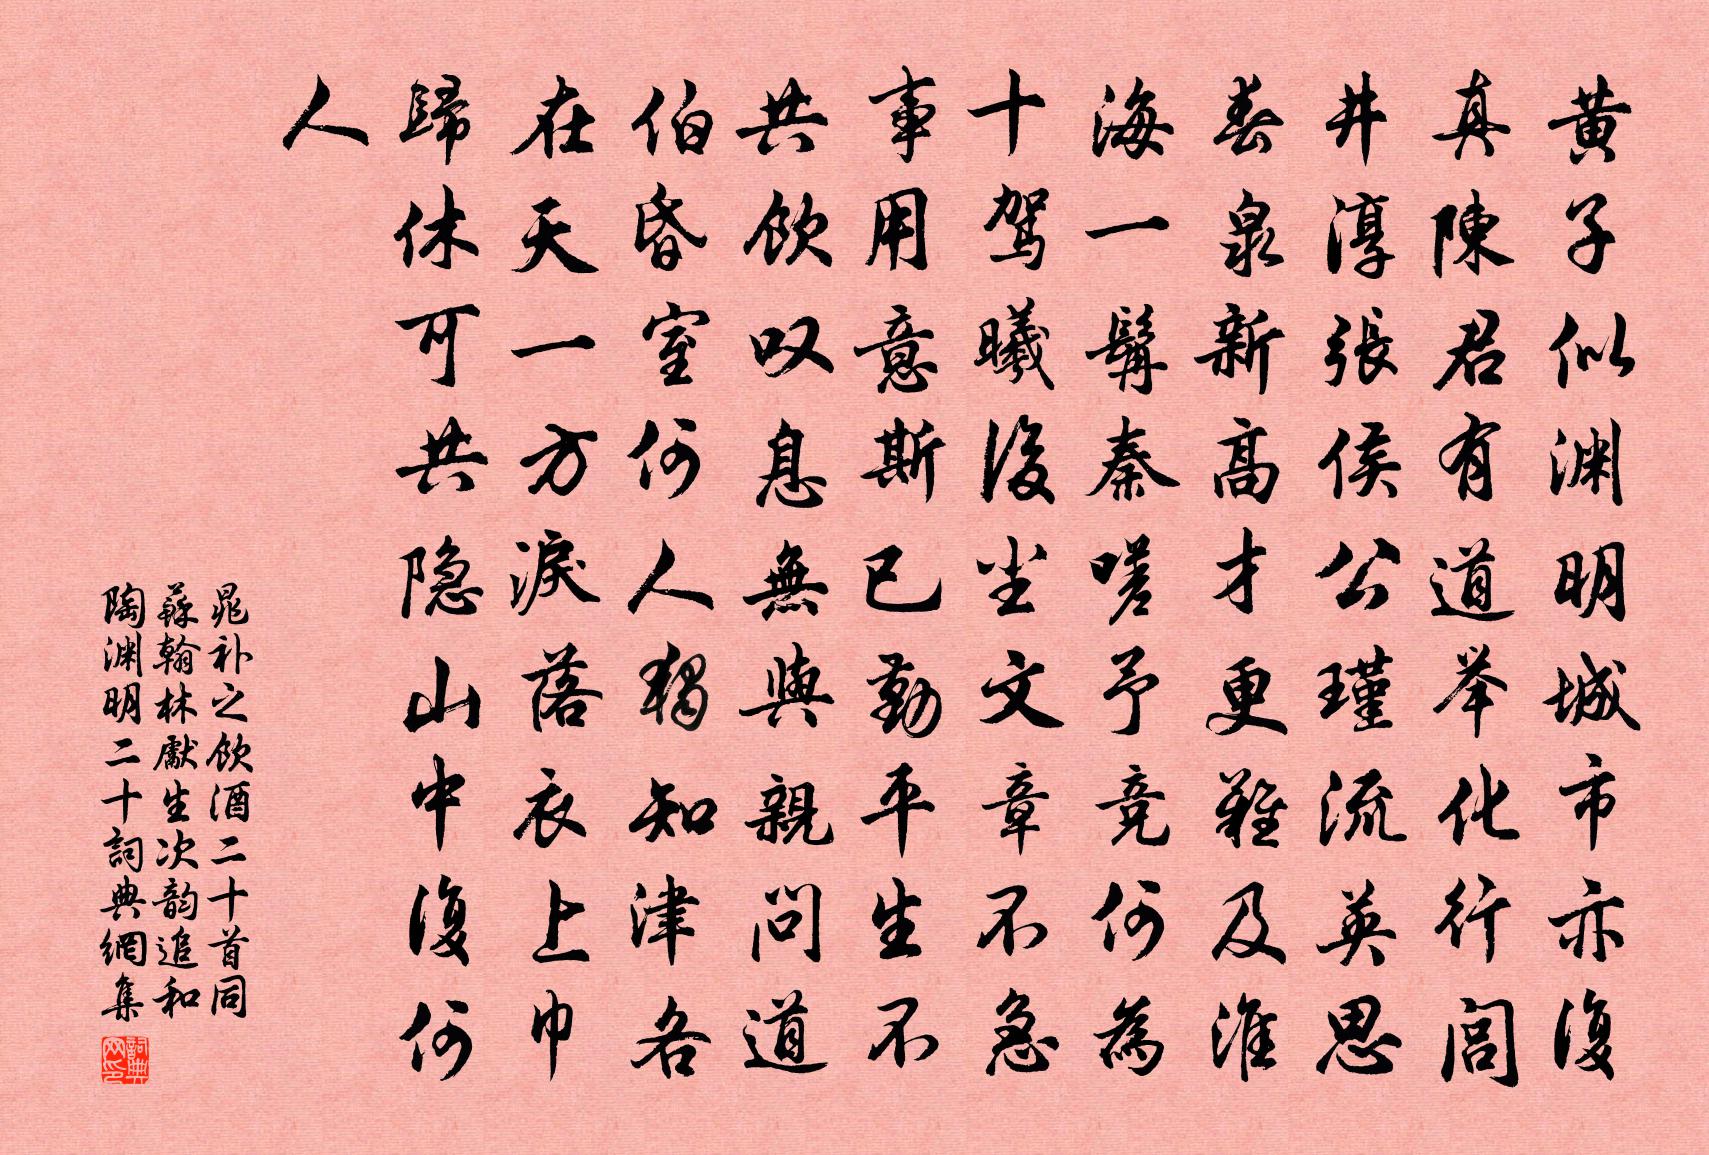 黄子似渊明城市亦復
真陳君有道举化行閭
井淳張侯公瑾流英思
春泉新高才更難及淮
海一髯秦嗟予竞何為
十驾曦後尘文章不急
事用意斯已勤平生不
共飲叹息無與親問道
伯昏室何人獨知津各
在天一方淚落衣上巾
歸休可共隐山中復何
人
晁补之飲酒二十首同
蘇翰林獻生次韵追和
陶渊明二十詞典網集
詞典网印